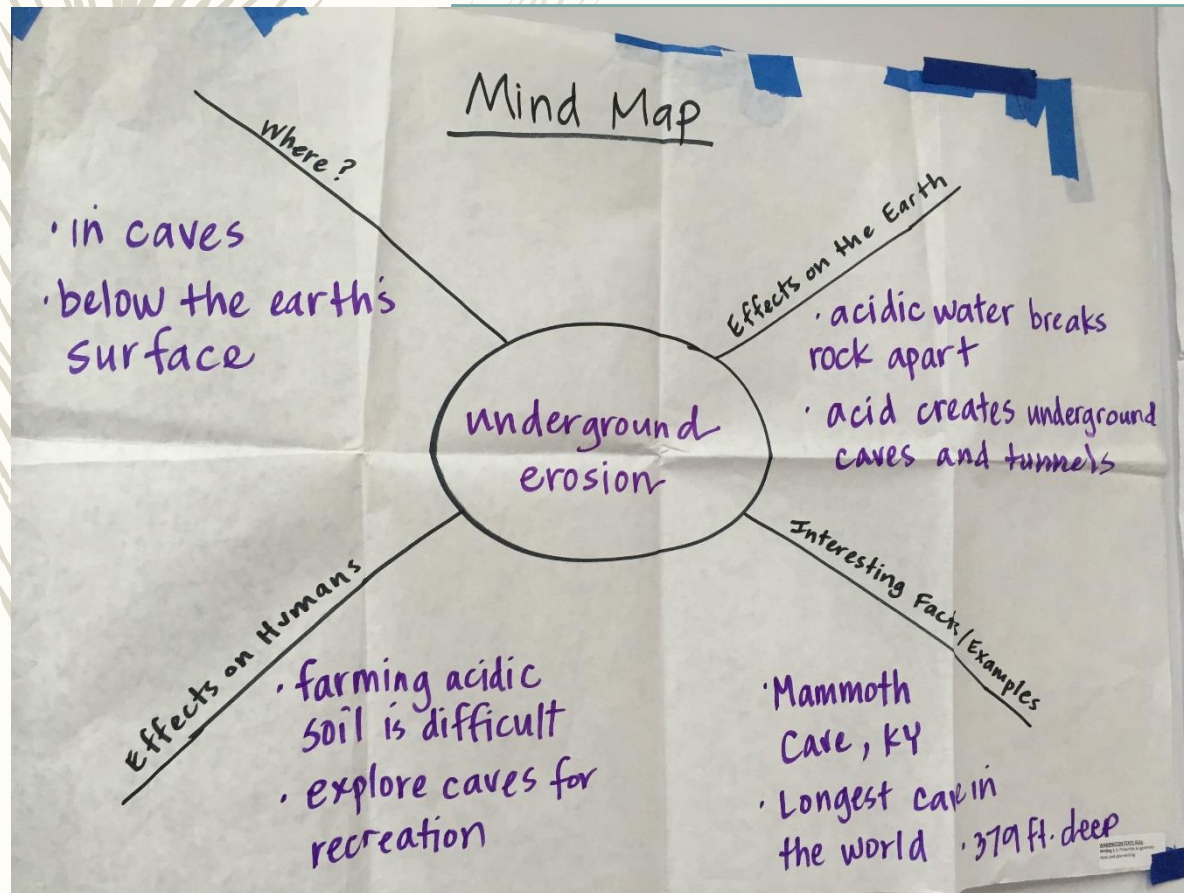 Mind Map
Where?
· in caves
· below the earth's
surface
Effects on the Earth
· acidic water breaks
rock apart
· acid creates underground
caves and tunnels
underground
erosion
Effects on Humans
· farming acidic
soil is difficult
· explore caves for
recreation
Interesting Facts/Examples
· Mammoth
Cave, KY
· Longest cave in
the world · 379 ft. deep